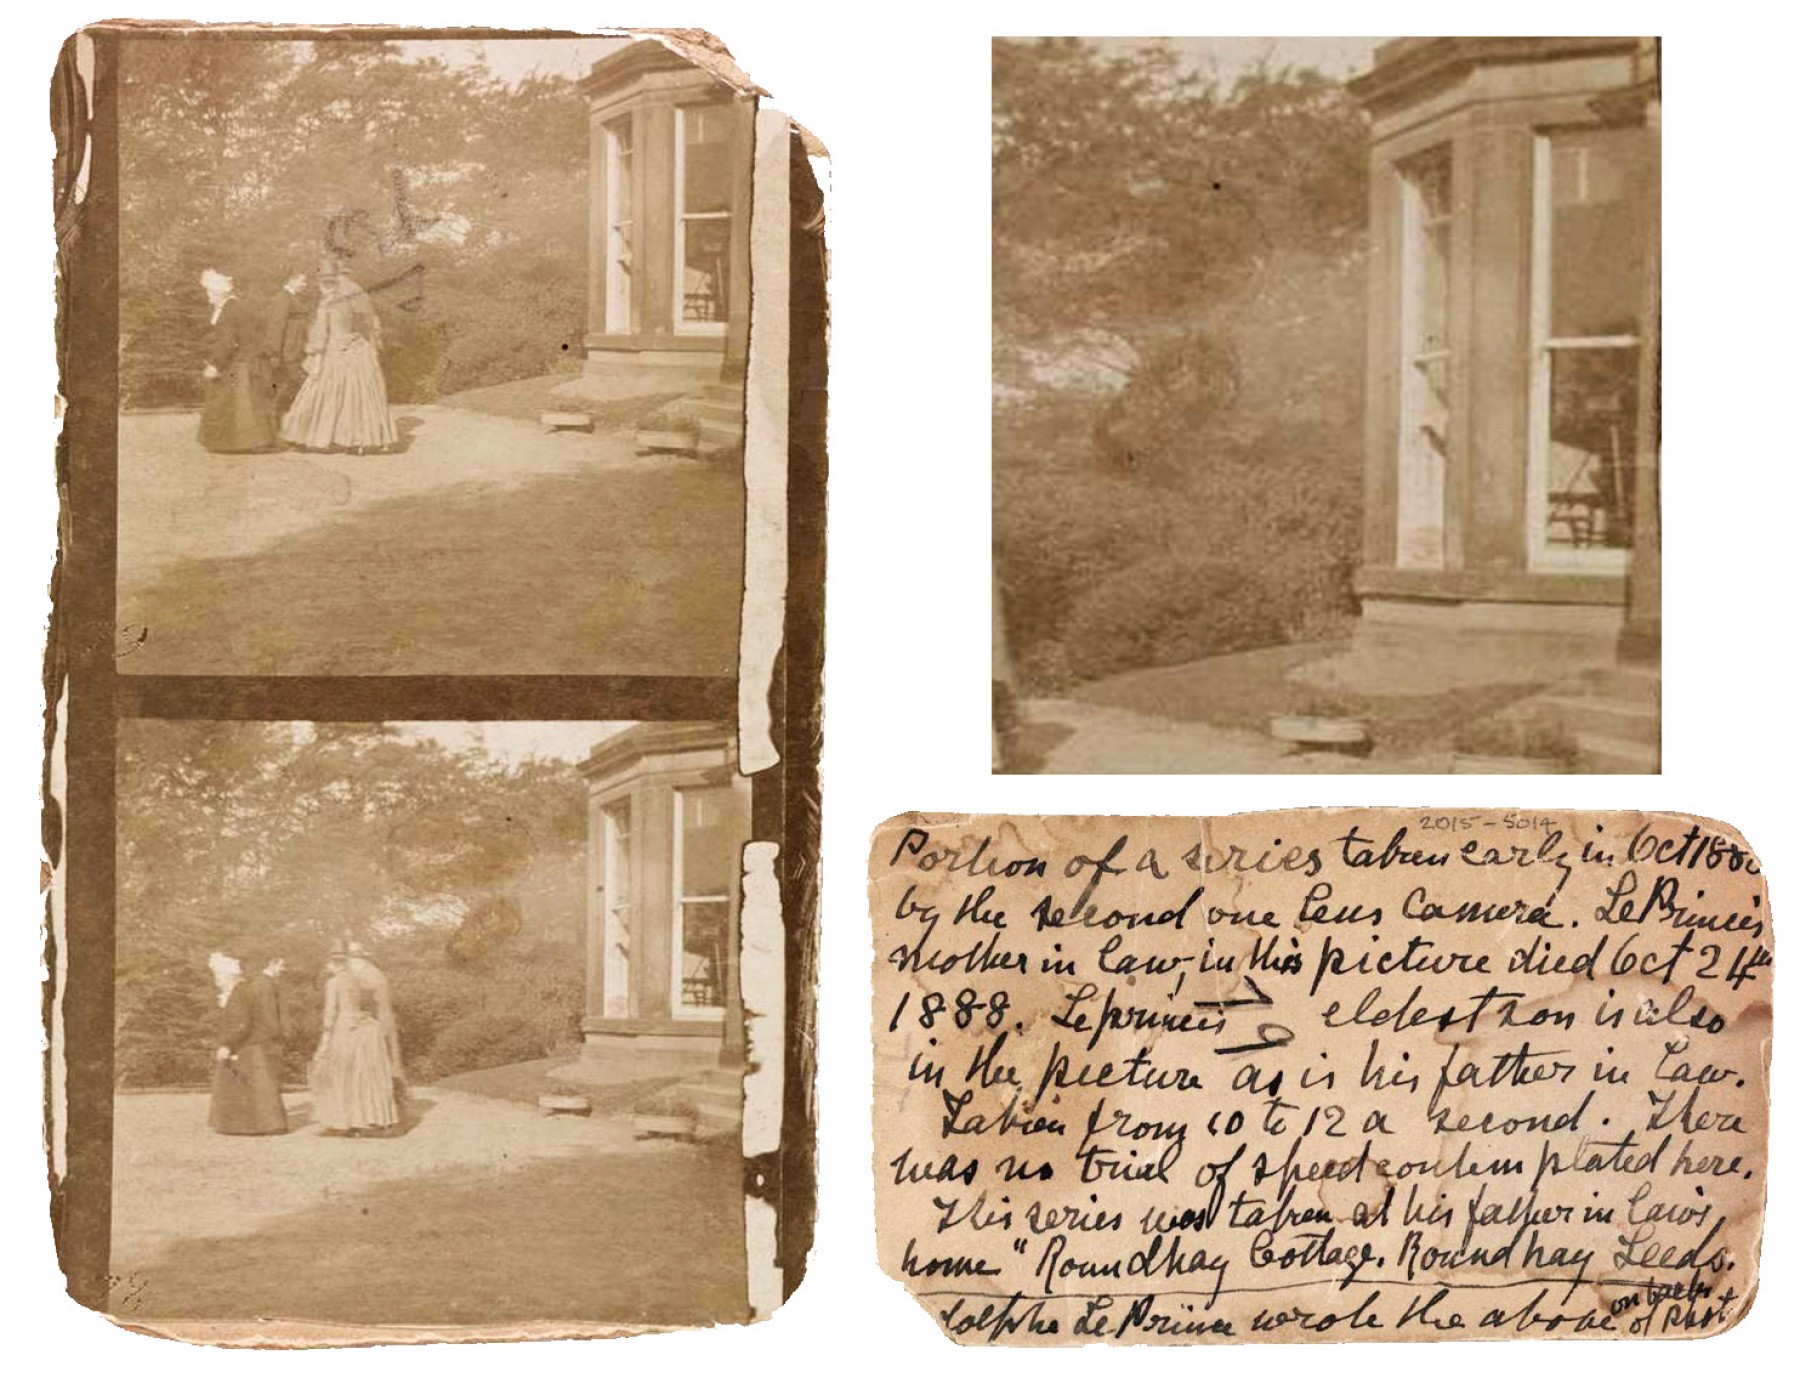 2015-5014
Portion of a series taken early in Oct 188
by the second one lens Camera. LePrince's
mother in law, in this picture died Oct 24th
1888. Leprince's eldest son is also
in the picture as is his father in law.
Taken from 10 to 12 a second. There
was no trial of speed contemplated here.
This series was taken at his father in law's
home "Roundhay Cottage. Roundhay Leeds.
dolphe Le Prince wrote the above on back of